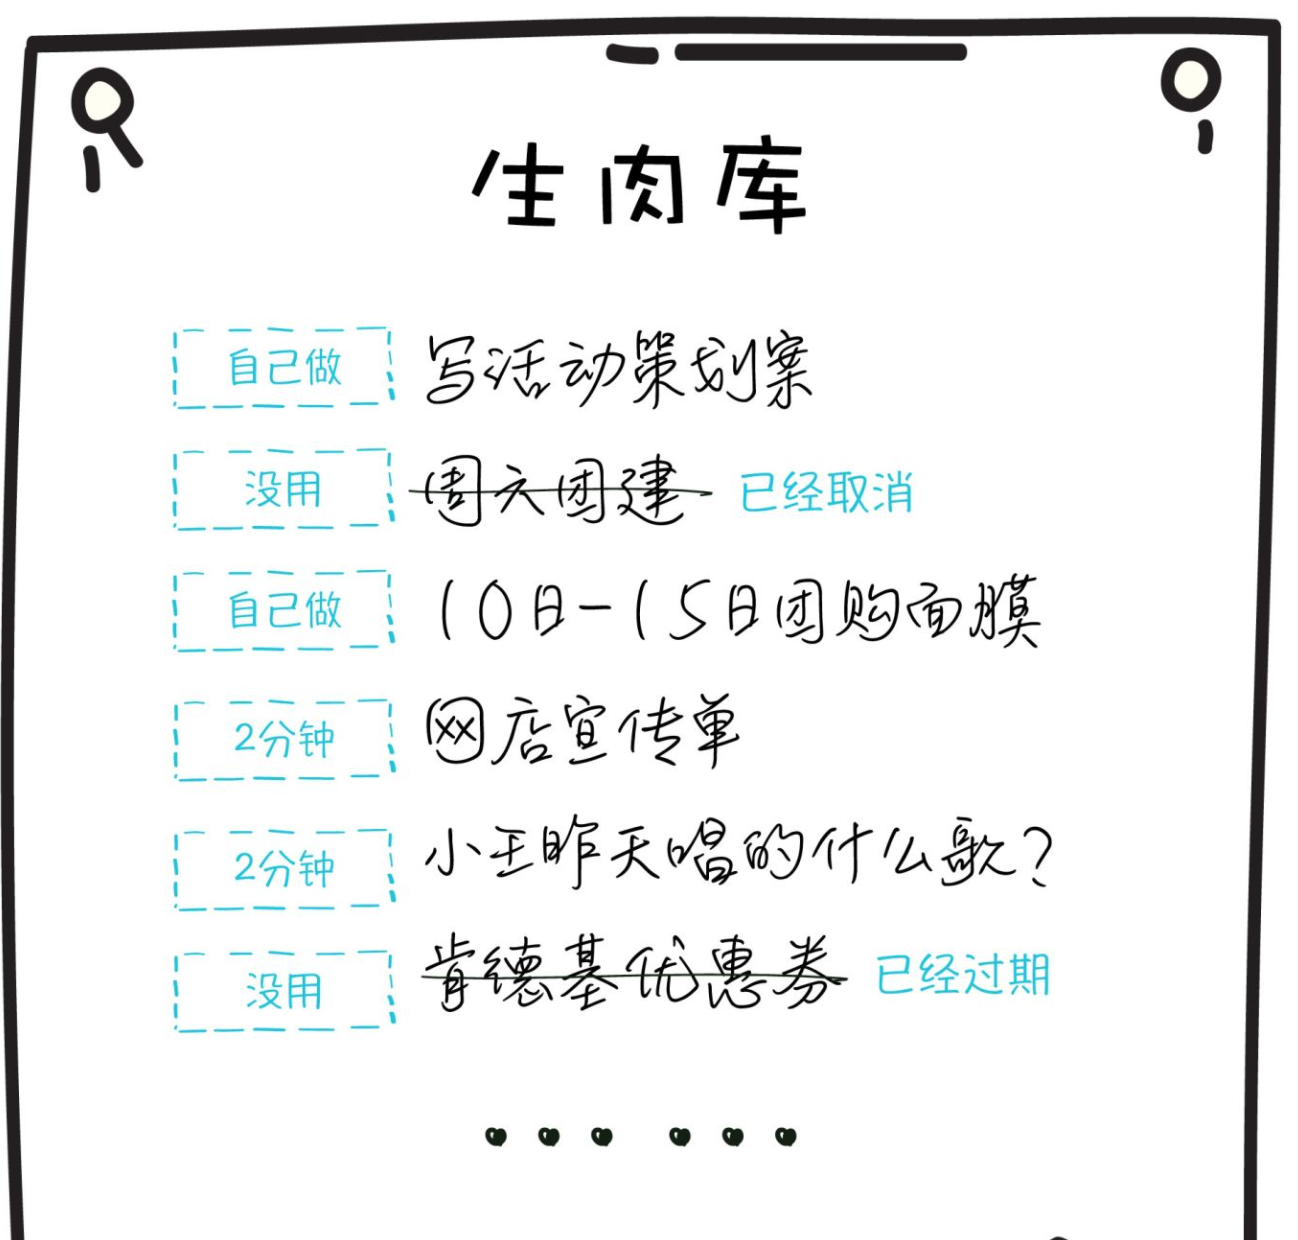 生肉库
自己做 写活动策划案
没用 周六团建 已经取消
自己做 10日-15日团购面膜
2分钟 网店宣传单
2分钟 小王昨天唱的什么歌?
没用 肯德基优惠券 已经过期